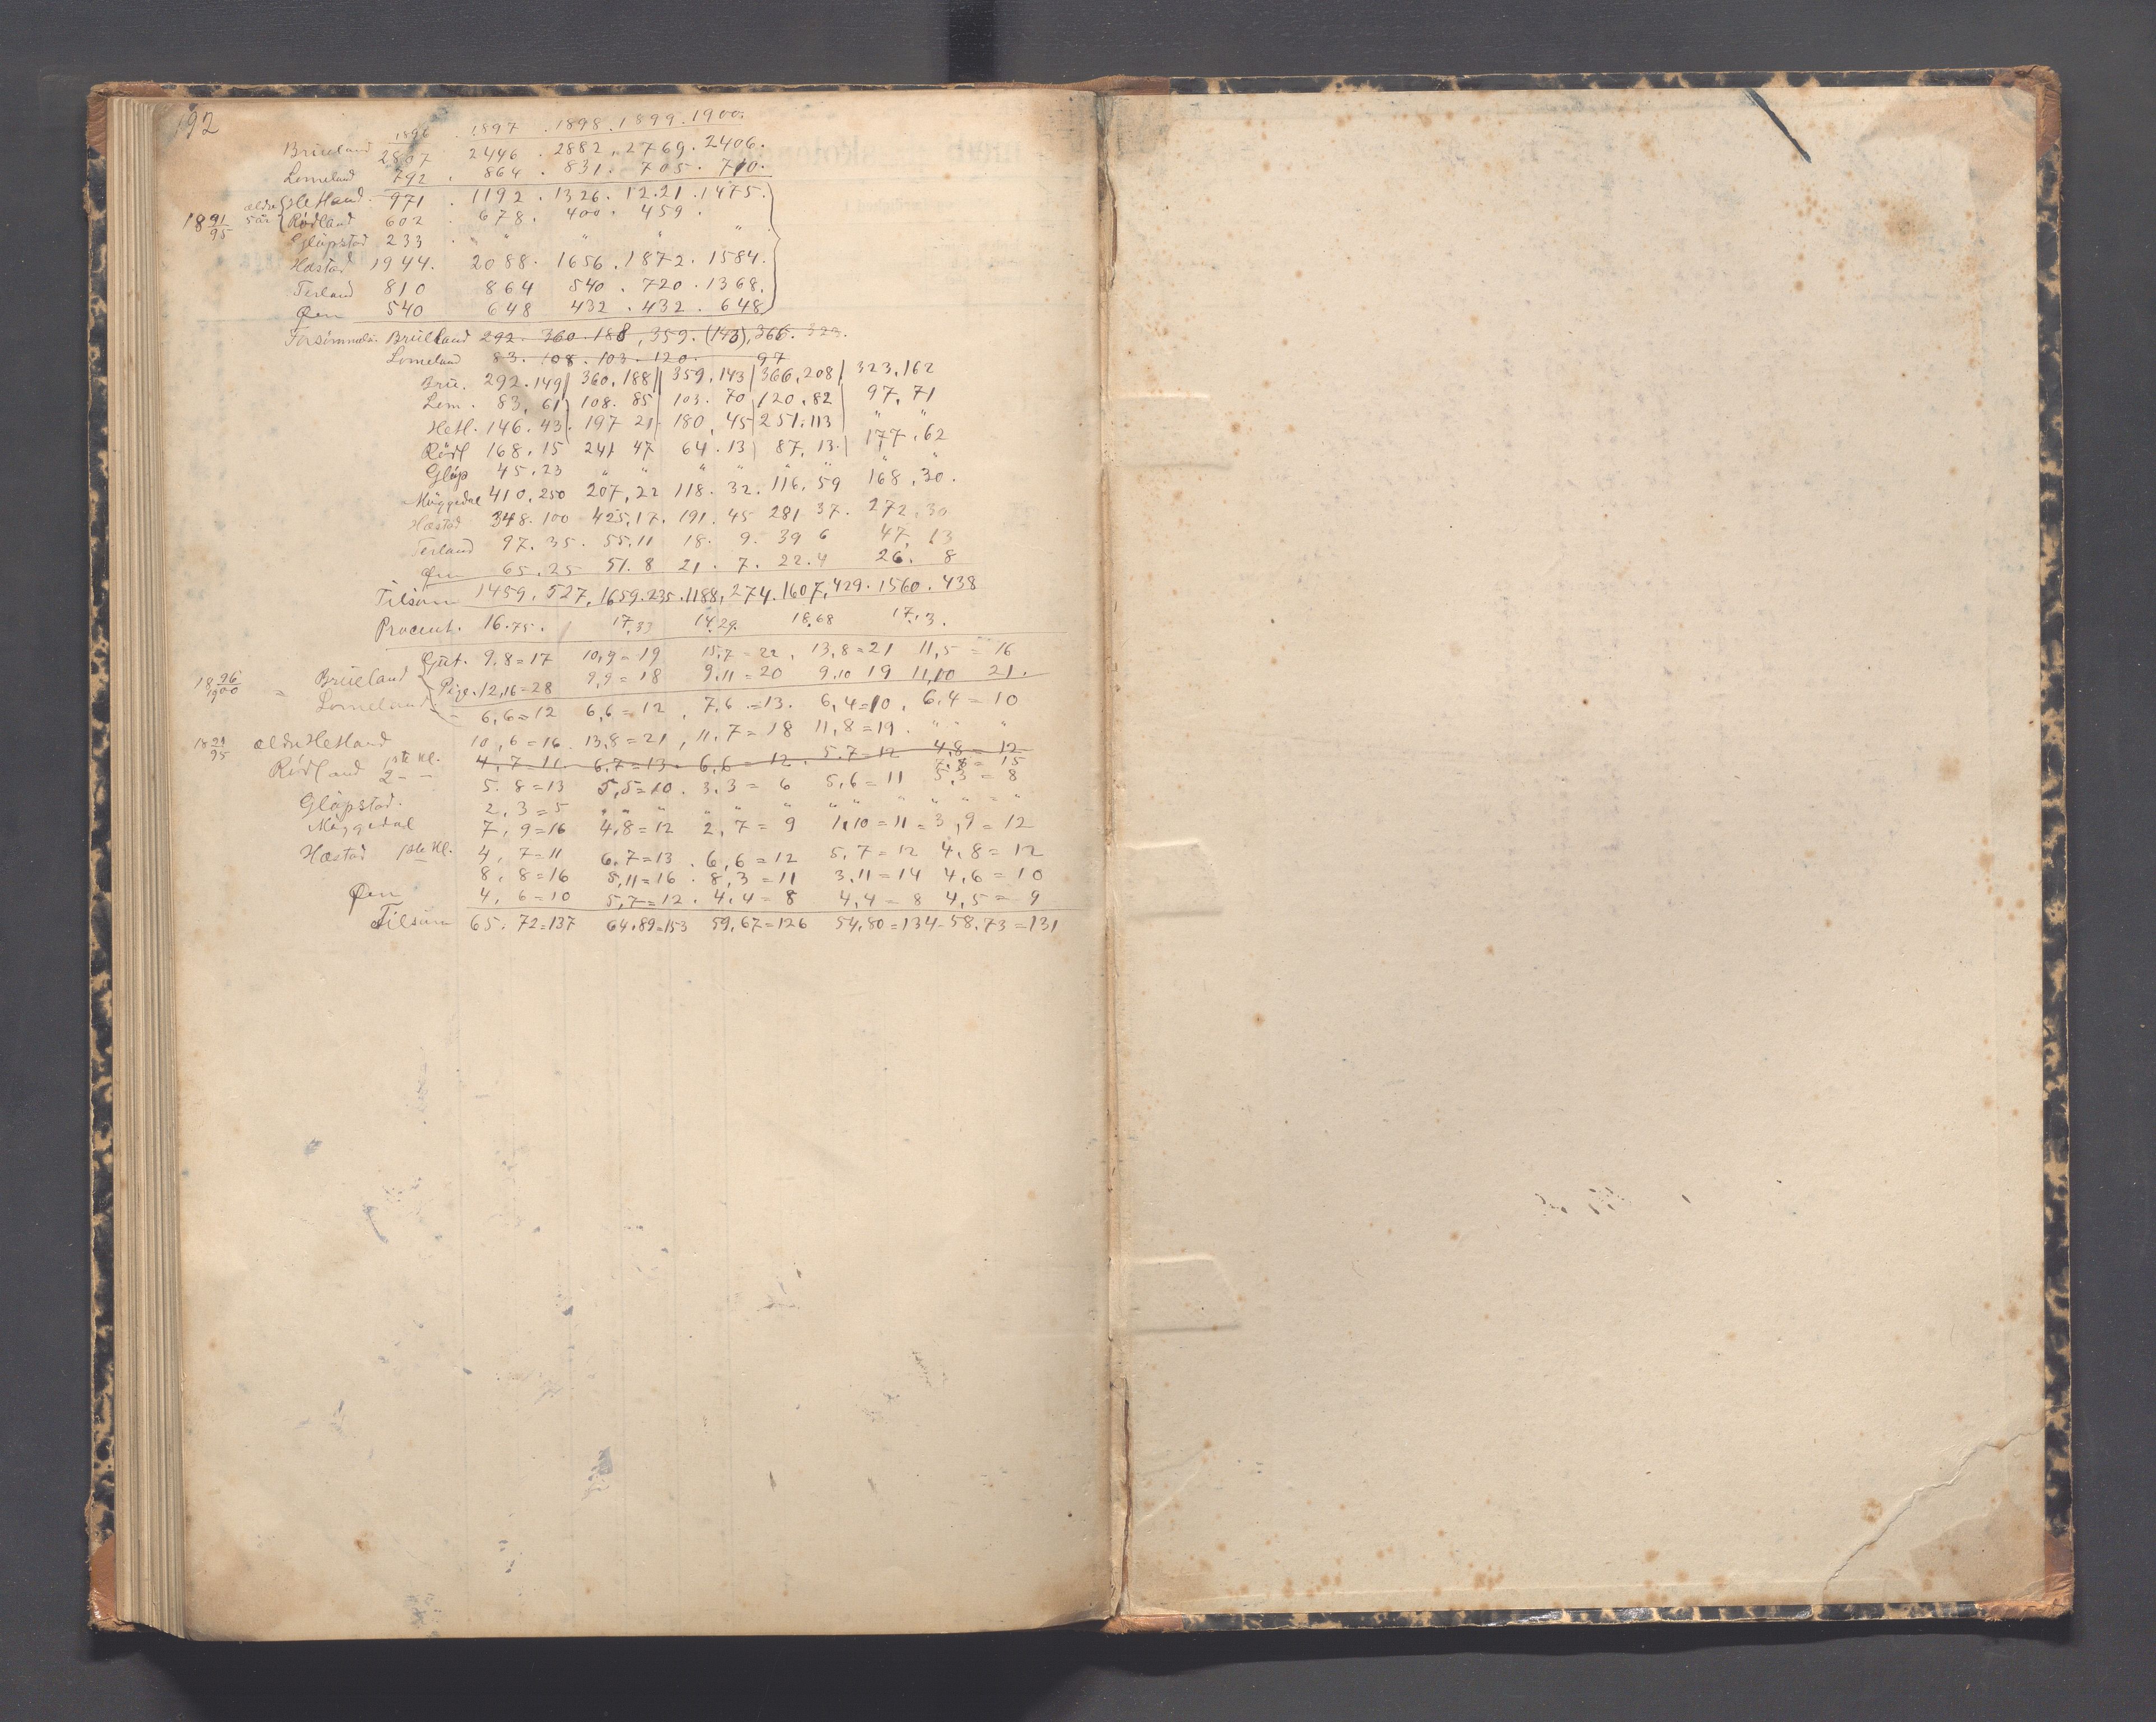 192
1896 . 1897 . 1898 . 1899 . 1900.
Brueland 2807 2446 . 2882 . 2769 . 2406.
Lomeland 792 . 864 . 831 . 705 . 710.
ældre Hetland . 971 . 1192 . 1326 . 1221 . 1475.
18 91/95 5 år Rødland 602 . 678 . 400 . 459 .
Gløpstad 233 . " " " "
Hæstad 1944. 2088. 1656 . 1872 . 1584.
Terland 810 864 540 . 720 . 1368.
Øen 540 648 432 . 432 . 648
Forsömmels. Brueland 292 . 360 . 188 , 359 . (143), 366 . 323.
Lomeland 83 . 108 . 103 . 120 . 97
Bru. 292 . 149 | 360 . 188 || 359 . 143 | 366 , 208 | 323 , 162
Lom . 83 , 61 | 108 . 85 | 103 . 70 | 120 . 82 | 97 , 71
Hetl. 146 . 43 . 197 21 . 180 , 45 | 251 . 113 | " "
Rödl 168 . 15 241 47 64 . 13 | 87 , 13 . | 177 . 62
Gløp 45 . 23 " " " " " " " "
Myggedal 410 . 250 207 , 22 118 . 32 . 116 . 59 168 . 30 .
Hæstad 348 . 100 425 . 17 . 191 . 45 281 37 . 272 , 30
Terland 97 . 35 . 55 . 11 18 . 9 . 39 6 47 , 13
Øen 65 . 25 51 . 8 21 . 7 . 22 . 4 26 . 8
Tilsum 1459 . 527 , 1659 . 235 . 1188 , 274 . 1607 , 429 . 1560 . 438
Procent . 16.75 . 17.33 14.29. 18.68 17.3 .
Gut . 9 , 8 = 17 10 , 9 = 19 15 , 7 = 22 , 13 , 8 = 21 11 , 5 = 16
18 96/1900 = Brueland Pige . 12 , 16 = 28 9 , 9 = 18 9 . 11 = 20 9 . 10 19 11 , 10 21 .
Lomeland - 6 , 6 = 12 6 , 6 = 12 , 7 , 6 . = 13 . 6 , 4 = 10 , 6 . 4 = 10
18 91/95 ældre Hetland 10 , 6 = 16 . 13 , 8 = 21 , 11 , 7 = 18 11 , 8 = 19 . " " "
Rödland 1ste Kl. 4 , 7 = 11 6 . 7 = 13 . 6 , 6 = 12 . 5 . 7 = 12 4 , 8 = 12
2 - - 5 . 8 = 13 5 , 5 = 10 . 3 , 3 = 6 5 , 6 = 11 5 , 3 = 8
Gløpstad . 2 , 3 = 5 " " " " " " " " " " " "
Myggedal 7 , 9 = 16 4 , 8 = 12 2 , 7 = 9 1 , 10 = 11 = 3 , 9 = 12
Hæstad 1ste Kl. 4 , 7 = 11 6 . 7 = 13 . 6 , 6 = 12 5 , 7 = 12 4 , 8 = 12
8 , 8 = 16 5 , 11 = 16 . 8 , 3 = 11 3 . 11 = 14 4 , 6 = 10
Øen 4 , 6 = 10 5 , 7 = 12 . 4 , 4 = 8 4 , 4 = 8 4 , 5 = 9
Tilsum 65 . 72 = 137 64 . 89 = 153 59 , 67 = 126 54 , 80 = 134 - 58 . 73 = 131